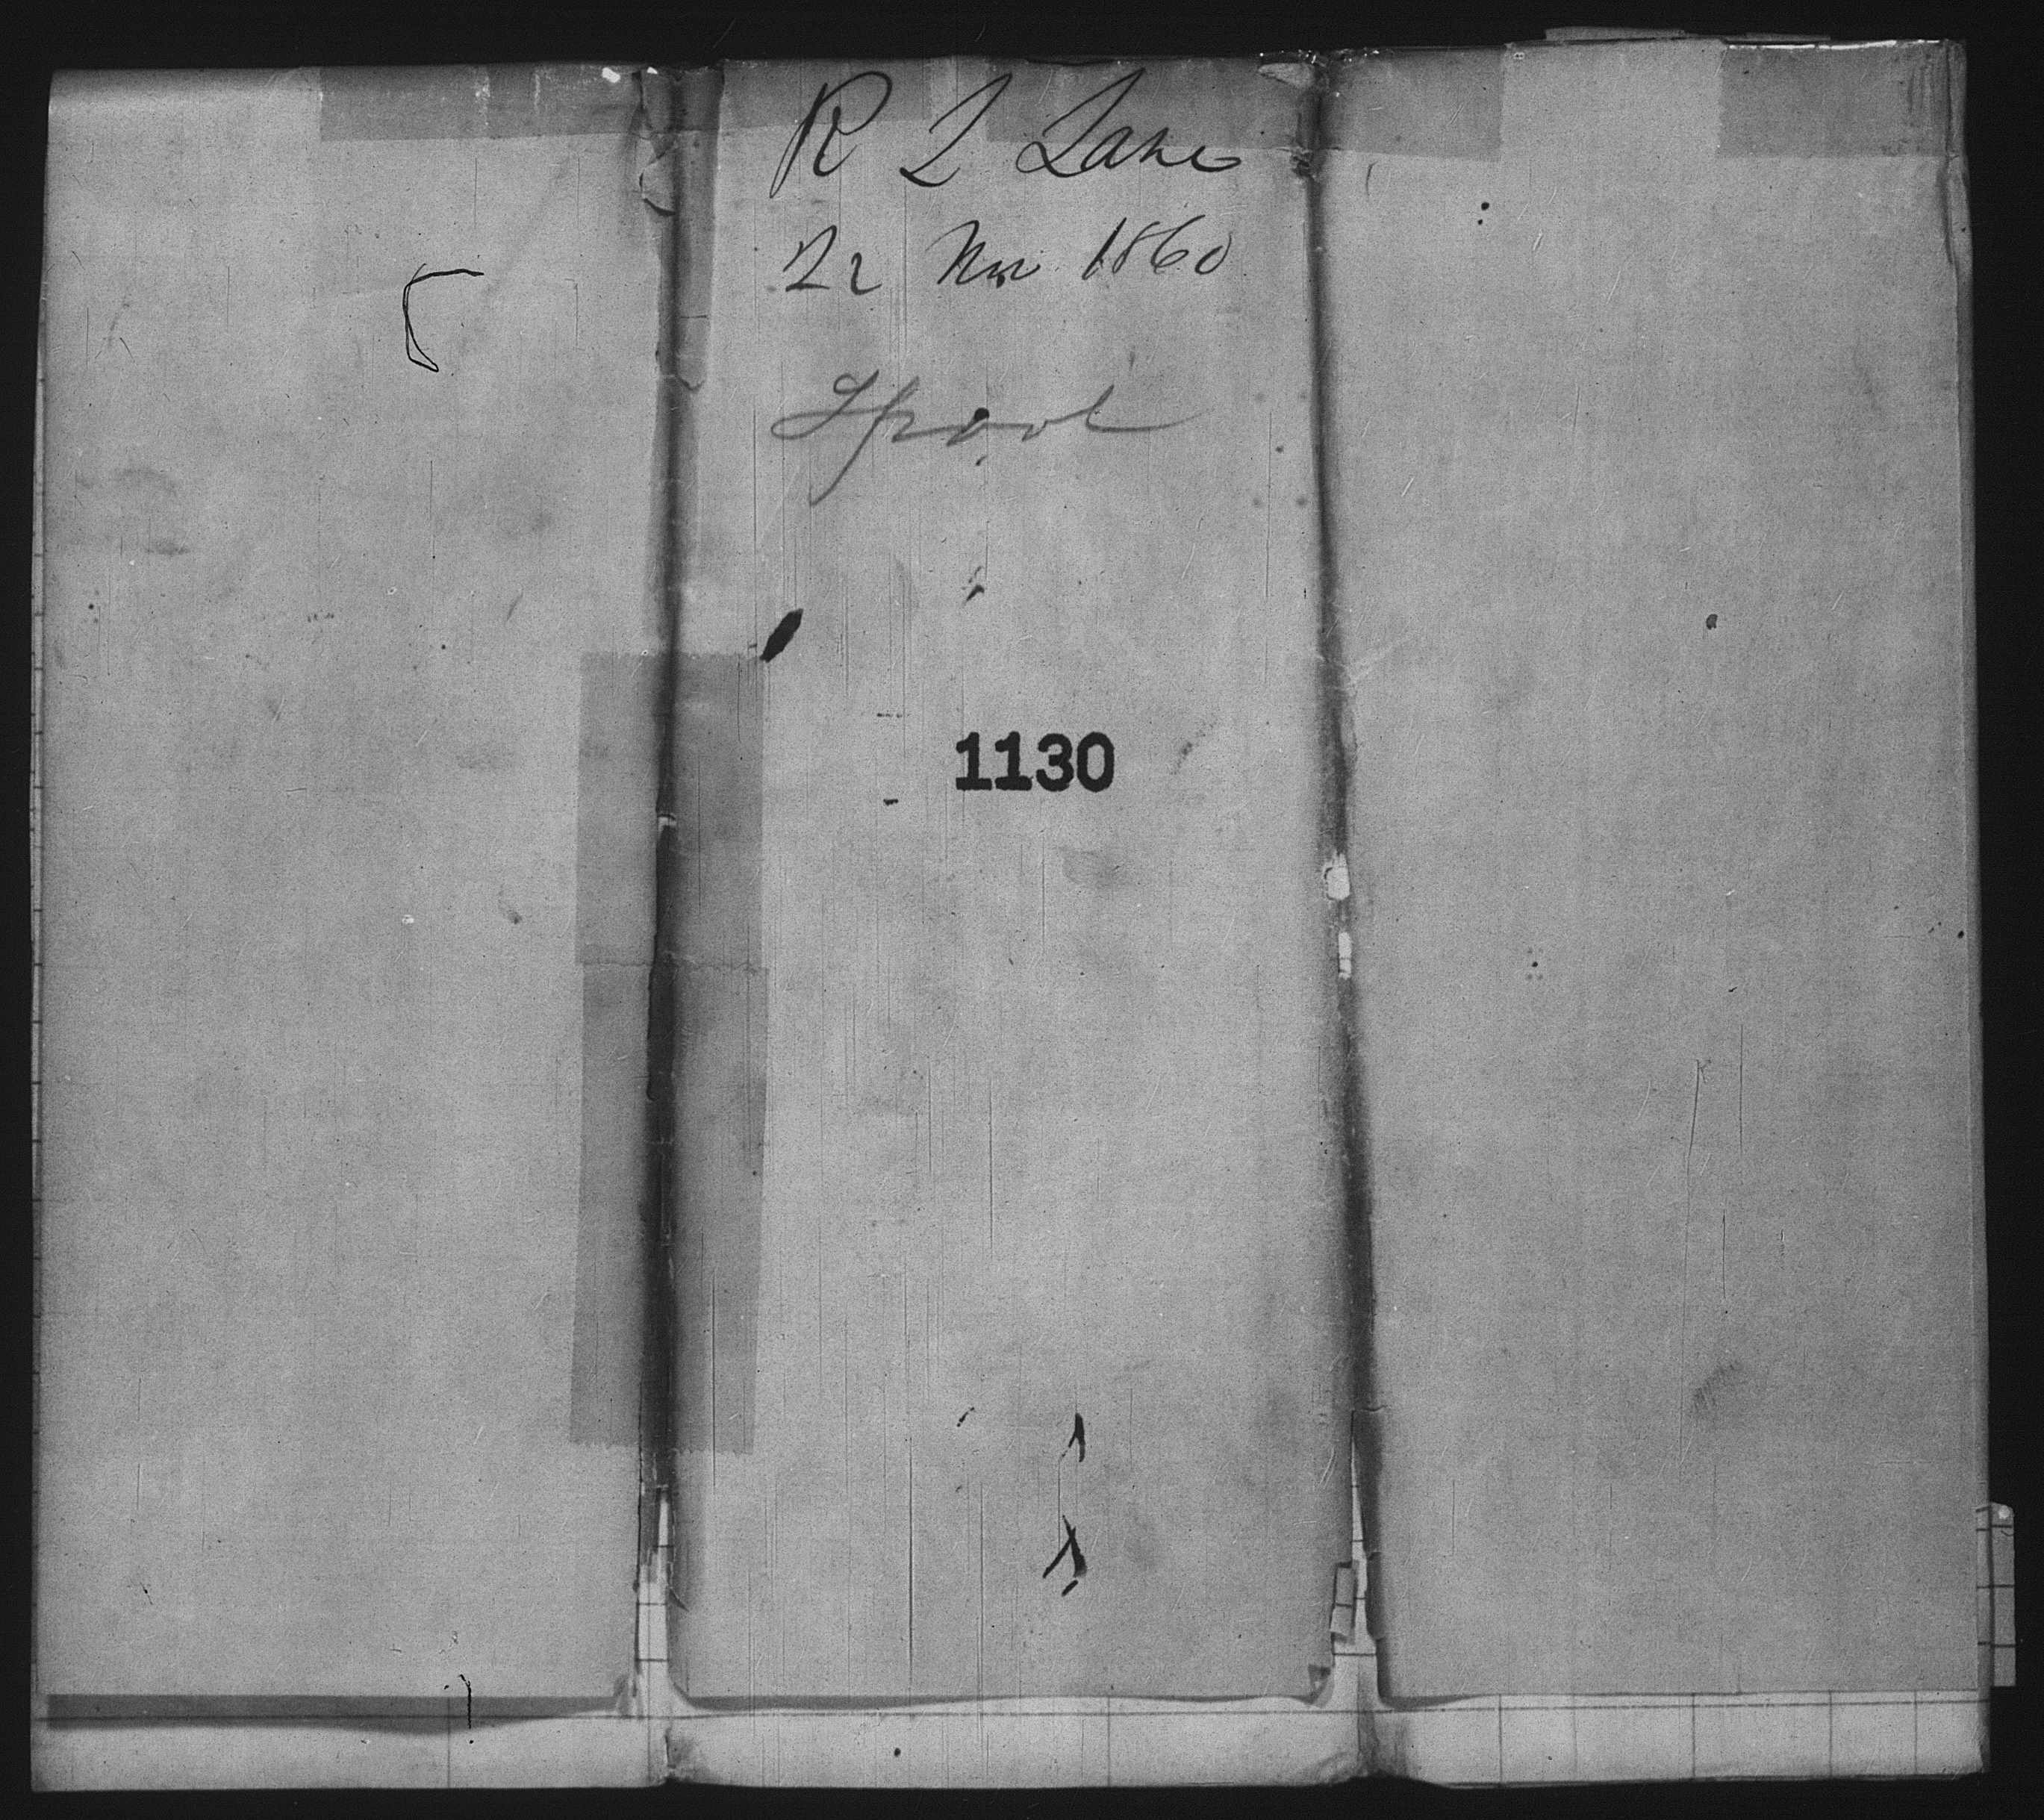 R L Lane
22 Nov 1860
Lpool
1130